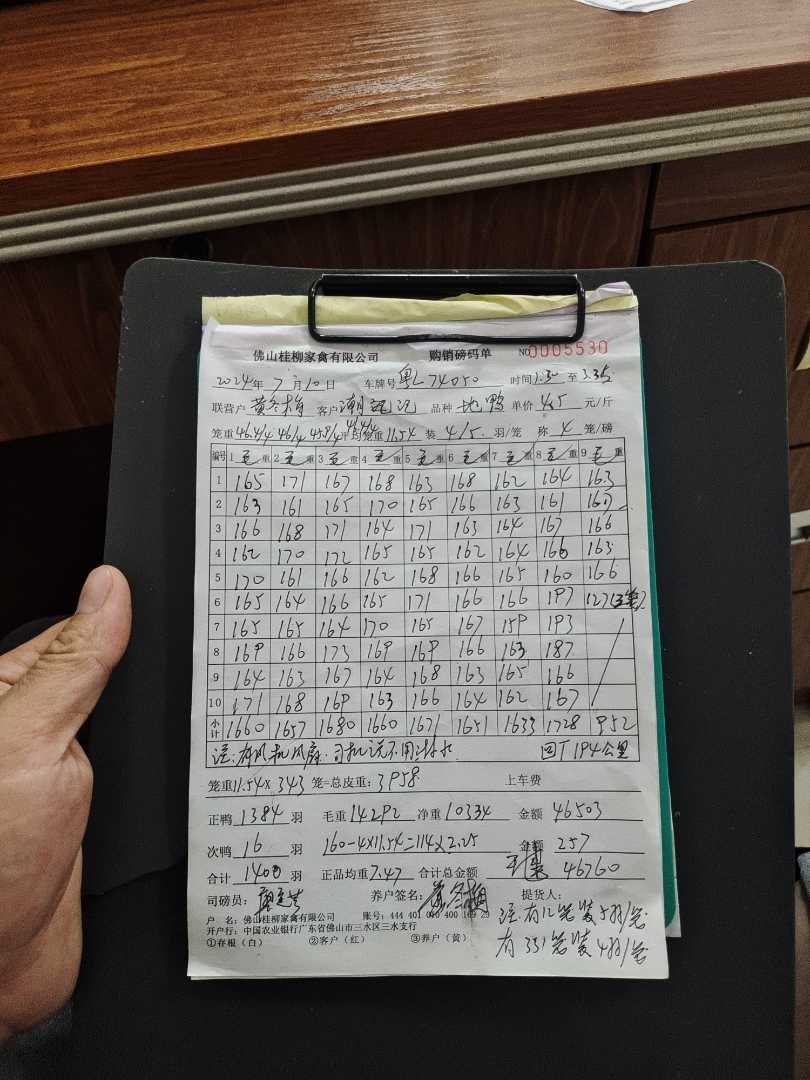 佛山桂柳家禽有限公司 购销磅码单 NO 0005530
2024年 7月10日 车牌号 粤L74050 时间1:30 至 3:35
联营户 黄冬梅 客户 潮 记 品种 地鸭 单价 4.5 元/斤
笼重 46.4/4 46/4 45.8/4 46.4/4 平均笼重 11.54 装 4/5 羽/笼 称 4 笼/磅
编号 1 毛重 2 毛重 3 毛重 4 毛重 5 毛重 6 毛重 7 毛重 8 毛重 9 毛重
1 165 171 167 168 163 168 162 164 163
2 163 161 165 170 165 166 163 161
3 166 168 171 164 171 163 164 167 166
4 162 170 172 165 165 162 164 166 163
5 170 161 166 162 168 166 165 160 166
6 165 164 166 165 171 166 166 197 127(3笼)
7 165 165 164 170 165 167 159 193
8 169 166 173 169 169 166 163 187
9 164 163 167 164 168 163 165 166
10 171 168 169 163 166 164 162 167
小计 1660 1657 1680 1660 1671 1651 1633 1728 952
注:有风机风扇.司机说不用淋水 回厂194公里
笼重11.54X 343 笼=总皮重: 3958 上车费
正鸭 1384 羽 毛重 14292 净重 10334 金额 46503
次鸭 16 羽 160-4x11.54=114x2.25 金额 257
合计 1400 羽 正品均重 7.47 合计总金额 46760
司磅员: 养户签名: 黄冬梅 提货人:
户 名: 佛山桂柳家禽有限公司 账号: 444 401 040 400 169 29
开户行: 中国农业银行广东省佛山市三水区三水支行
①存根(白) ②客户(红) ③养户(黄)
注:有12笼装5羽/笼
有331笼装4羽/笼